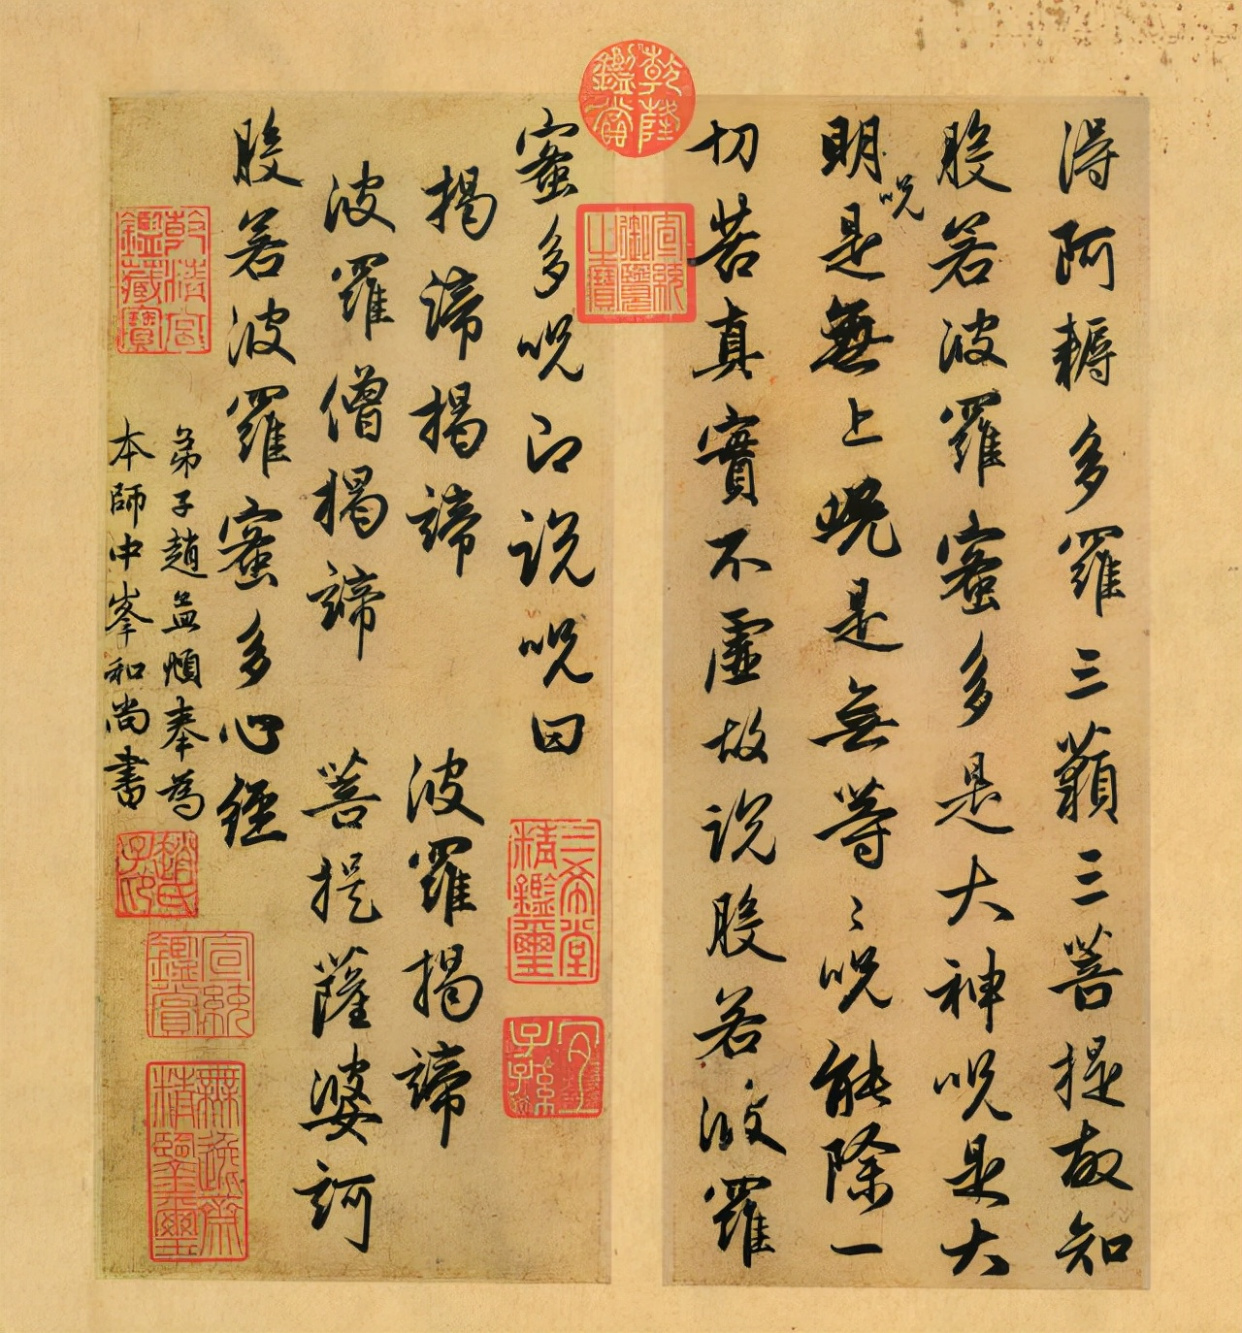 得阿耨多羅三藐三菩提故知
般若波羅蜜多是大神呪是大
明呪是無上呪是無等〻呪能除一
切苦真實不虛故說般若波羅
蜜多呪即說呪曰
揭諦揭諦　波羅揭諦
波羅僧揭諦　菩提薩婆訶
般若波羅蜜多心經
弟子趙孟頫奉為
本師中峯和尚書
乾隆鑑賞
宣統御覽之寶
三希堂精鑑璽
宜子孫
乾清宮鑑藏寶
宣統鑑賞
無逸齋精鑑璽